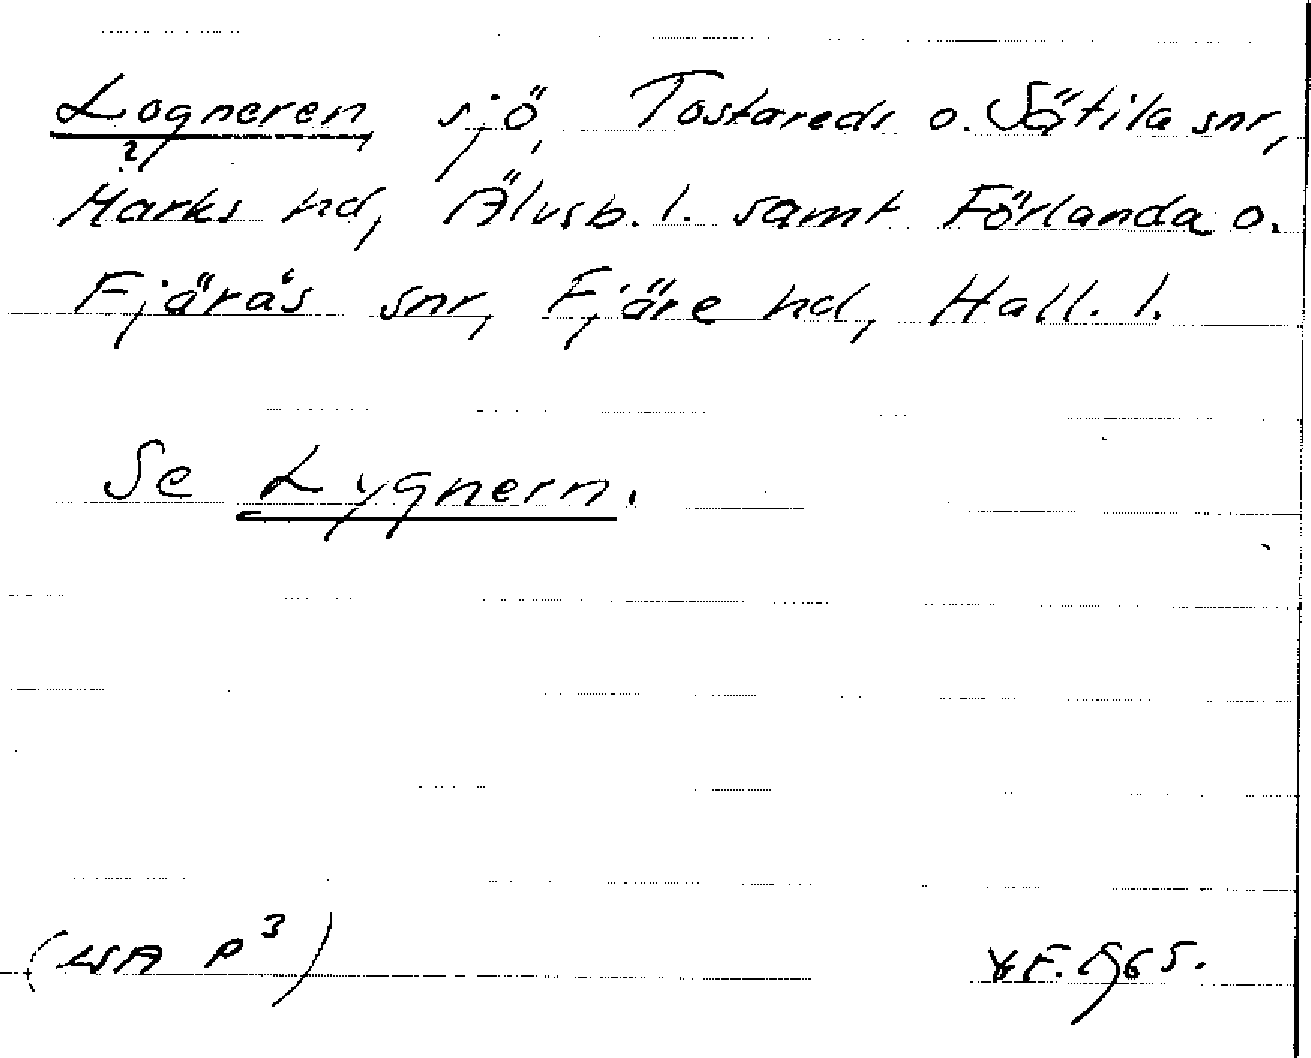 Logneren, sjö, Tostareds o. Sätila snr,
?
Marks hd, Älvsb. l. samt Förlanda o.
Fjärås snr, Fjäre hd, Hall. l.
Se Lygnern.
(LSA P 3)
F. 1965.